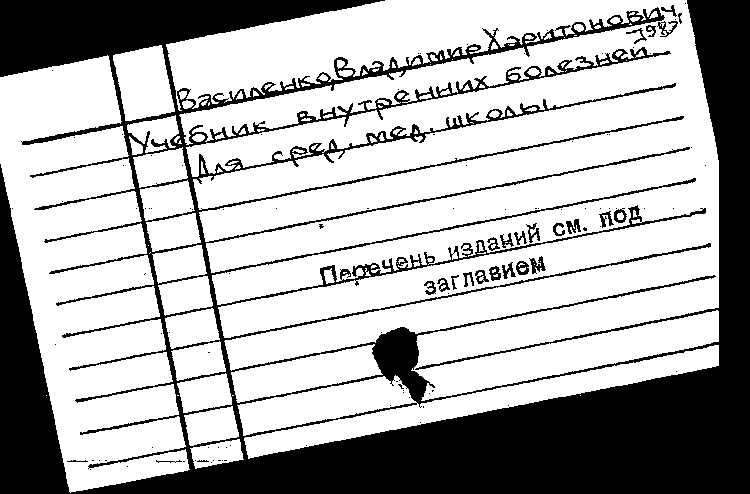 Василенко, Владимир Харитонович,
Учебник внутренних болезней.
Для сред. мед. школы.
Перечень изданий см. под
заглавием